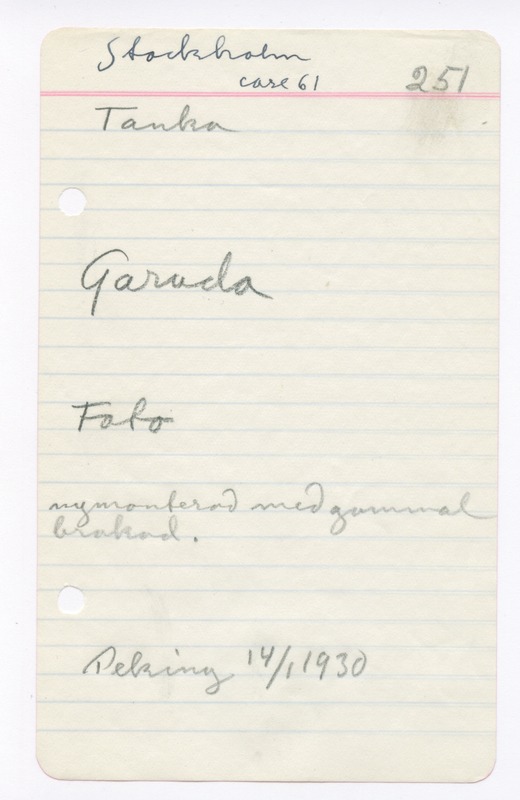 Stockholm
case 61
251
Tanka
Garuda
Foto
nymonterad med gammal
brokad.
Peking 14/1 1930